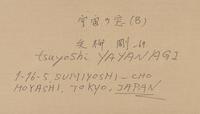 宇宙の窓 (B)
矢柳 剛
tsuyoshi YAYANAGI
1-16-5, SUMIYOSHI-CHO
HOYASHI, TOKYO, JAPAN